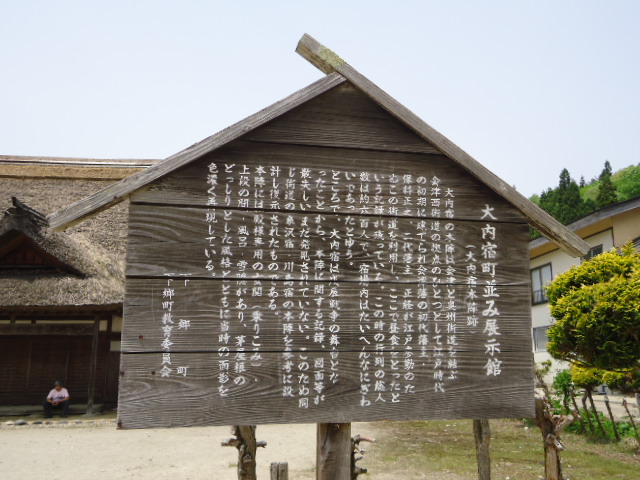 大内宿町並み展示館
(大内宿本陣跡)
大内宿の本陣は会津と奥州街道を結ぶ
会津西街道の拠点のひとつとして江戸時代
の初期に建てられ会津藩の初代藩主、
保科正之、二代藩主、正経が江戸参勤のた
めこの街道を利用し、ここで昼食をとったと
いう記録が残っている。この時の行列の総人
数は約六百人で、宿場内はたいへんなにぎわ
いであったとゆう。
ところで、大内宿は戊辰戦争の舞台とな
ったことから、本陣に関する記録、図面等が
散失しいまだ発見されていない。このため同
じ街道の糸沢宿、川島宿の本陣を参考に設
計し復元されたものである。
本陣には殿様専用の玄関(乗りこみ)、
上段の間、風呂、雪隠があり、茅屋根の
どっしりとした風格とともに当時の面影を
色濃く再現している。
下郷町
下郷町教育委員会